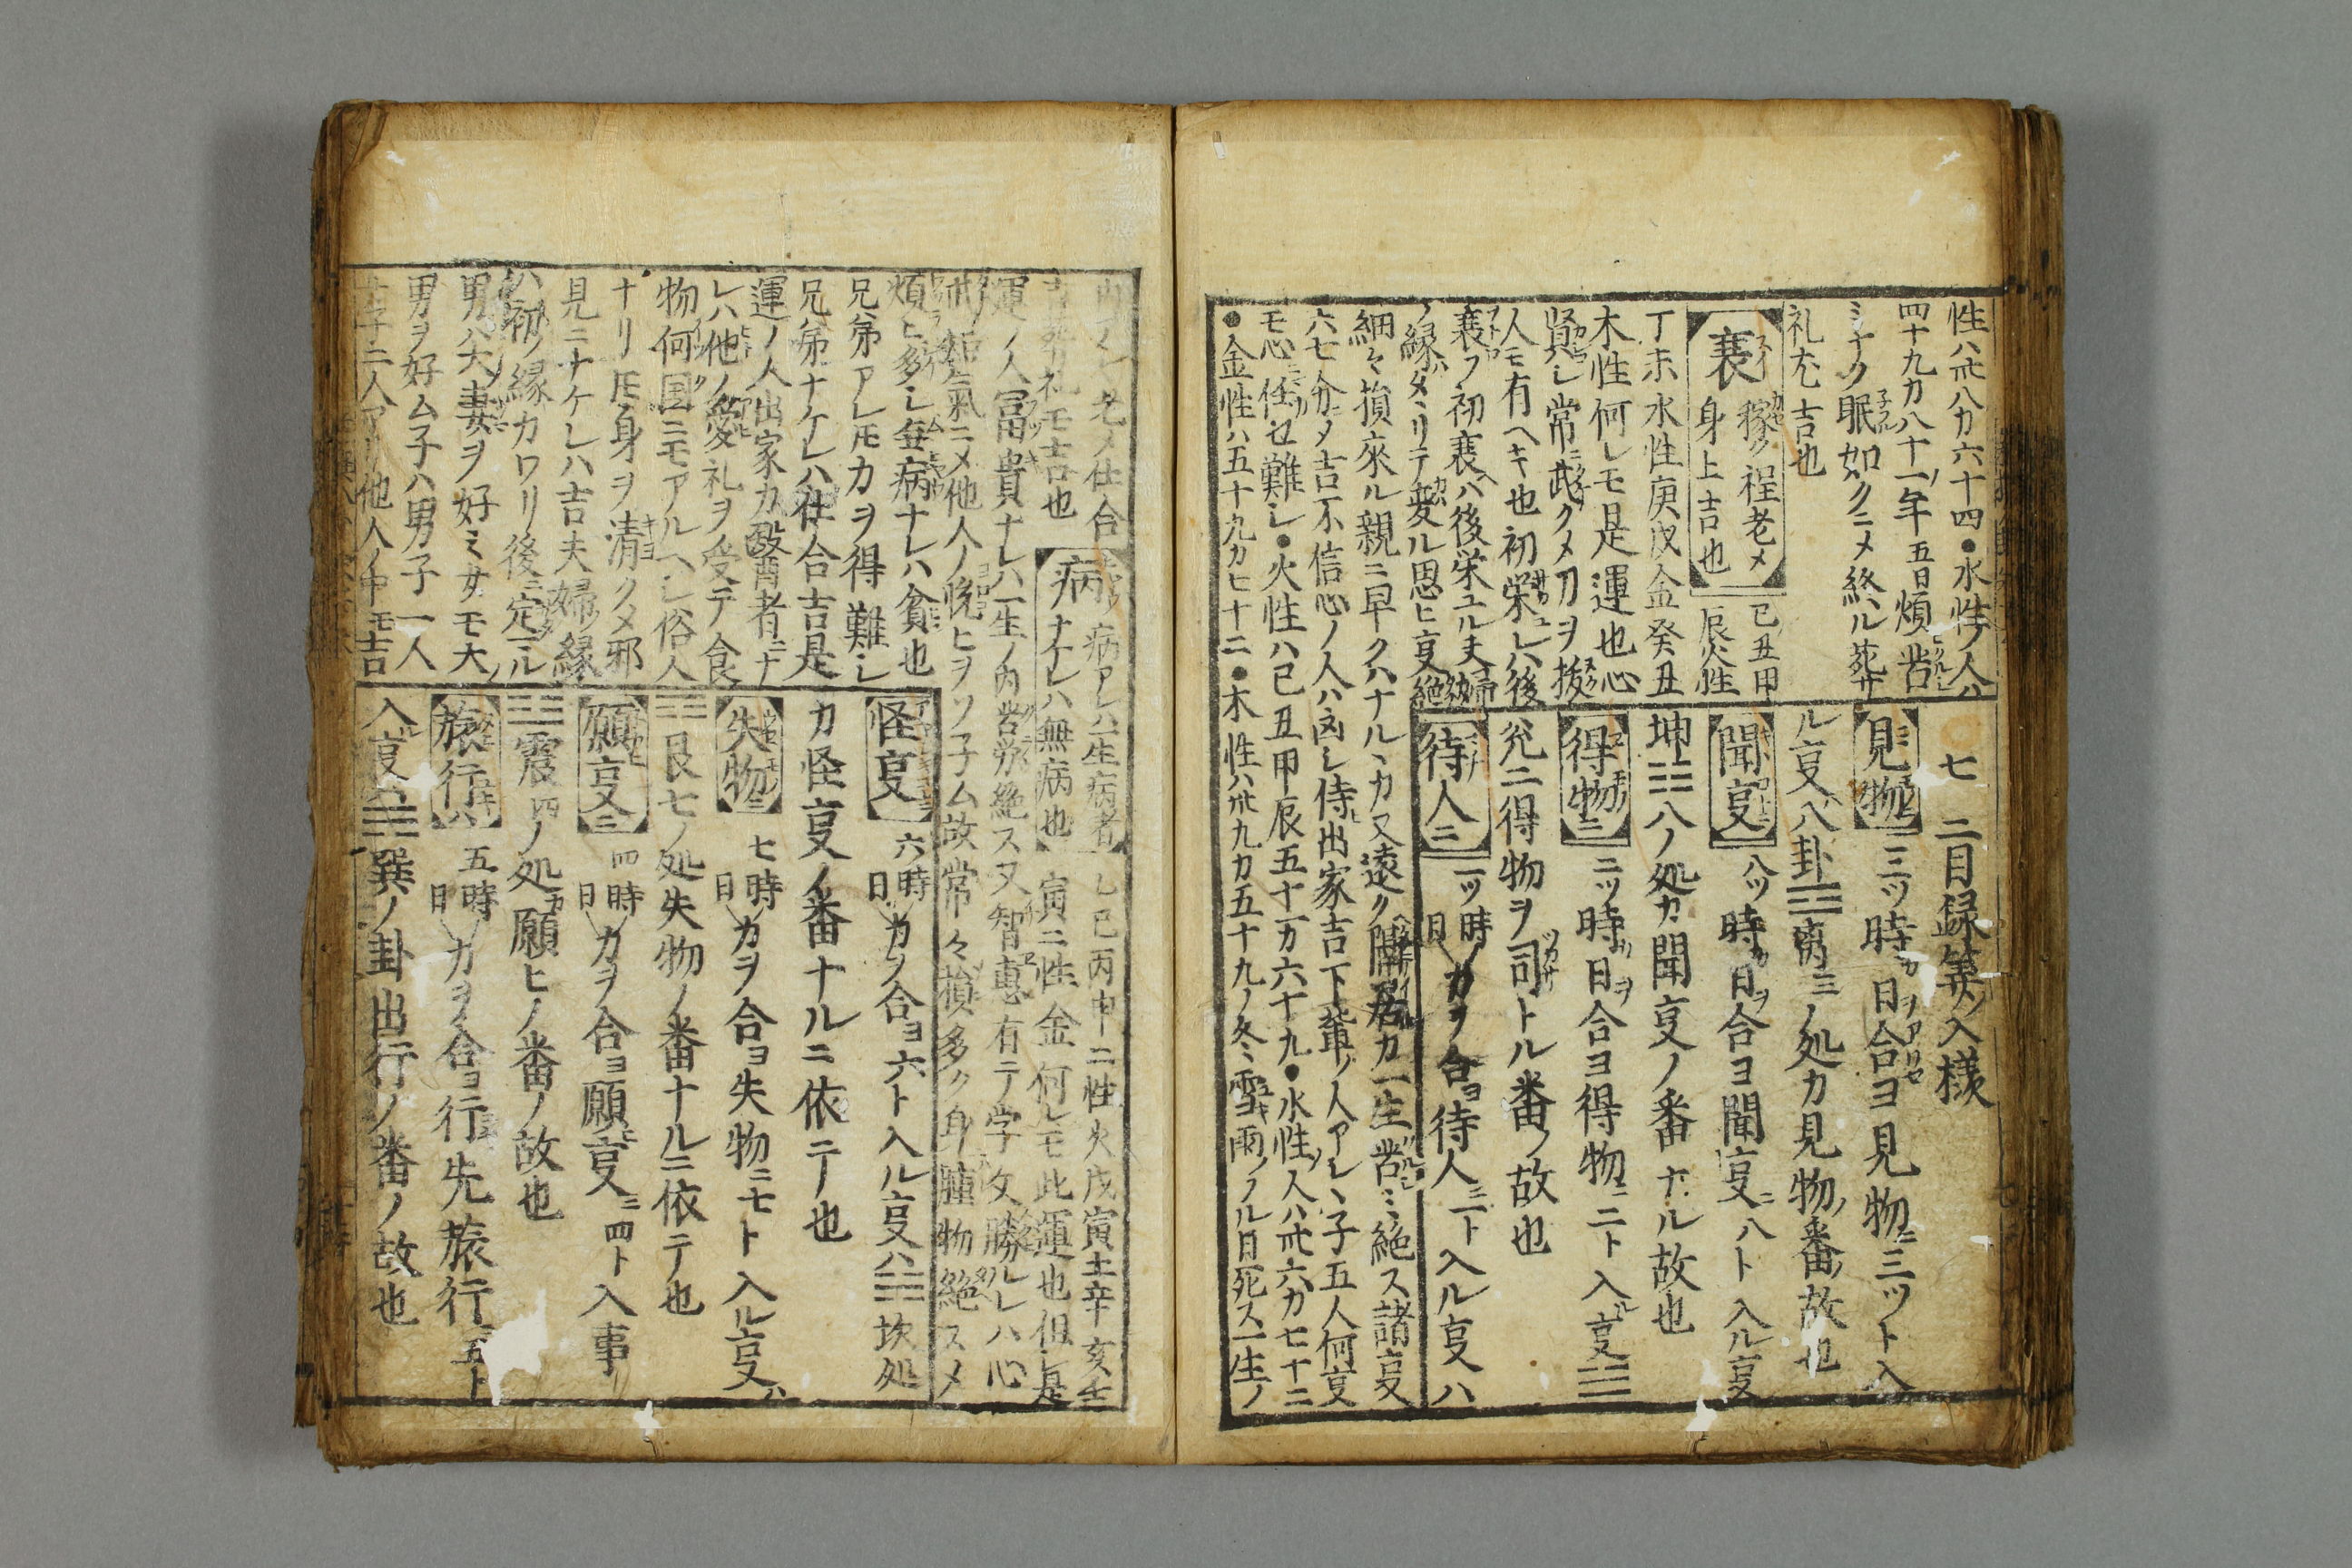 性ハ卅八カ六十四●水性ノ人ハ
四十九カ八十一年五日煩苦
ミナク眠如クニメ終ル葬
礼尤吉也
衰 稼ク程老メ身上吉也 己丑甲辰火性
丁未水性庚戌金癸丑
木性何レモ是運也心
賢シ常ニ武クメ刀ヲ抜
人モ有ヘキ也初栄ユレハ後
衰フ初衰ヘハ後栄ユル夫婦
ノ縁タヽリテ変ル思ヒ㕝絶
細々損来ル親ニ早クハナルヽカ又遠ク隔居カ一生苦ミ絶ス諸㕝
六七分メ吉不信心ノ人ハ凶シ侍出家吉下輩ノ人アレハ子五人何㕝
モ心ニ任セ難シ●火性ハ己丑甲辰五十一カ六十九●水性ノ人ハ卅六カ七十二
●金性ハ五十九カ七十二●木性ハ卅九カ五十九ノ冬ハ雪雨ノフル日死ス一生ノ
七 二目録筭ノ入様
見物ニ 三ツ時カ日ヲ合ヨ見物ニ三ツト入
ル㕝ハ八卦☲离三ノ処カ見物ノ番ノ故也
聞㕝ニ 八ツ時カ日ヲ合ヨ聞㕝ニ八ト入ル㕝
坤☷八ノ処カ聞㕝ノ番ナル故也
得物ニ 二ツ時カ日ヲ合ヨ得物ニ二ト入ル㕝☱
兊二得物ヲ司トル番ノ故也
待人ニ 一ツ時日カヲ合ヨ待人ニ一ト入ル㕝ハ
老メ仕合
礼モ吉也
病 病アレハ一生病者ナケレハ無病也
乙巳丙申二性火戊寅土辛亥
寅二性金何レモ此運也但シ是
運ノ人冨貴ナレハ一生ノ内苦労絶ス又智恵有テ学文勝ルレハ心
短氣ニメ他人ノ悦ヒヲソ子ム故常々損多ク身腫物絶スメ
煩ヒ多シ無病ナレハ貧也
兄弟アレ𪜈力ヲ得難シ
兄弟ナケレハ仕合吉是
運ノ人出家カ醫者ニナ
レハ他ノ愛礼ヲ受テ食
物何国ニモアルヘシ俗人
ナリ𪜈身ヲ清クメ邪
見ニナケレハ吉夫婦ノ縁
ハ初ノ縁カワリ後ニ定ル
男ハ大妻ヲ好ミ女モ大
男ヲ好ム子ハ男子一人
女子二人アリ他人ノ中モ吉
怪㕝 六時日カヲ合ヨ六ト入ル㕝ハ☵坎処
カ怪㕝ノ番ナルニ依テ也
失物ニ 七時日カヲ合ヨ失物ニ七ト入ル㕝ハ
☶艮七ノ処失物ノ番ナルニ依テ也
願㕝ニ 四時日カヲ合ヨ願㕝ニ四ト入事
☳震四ノ処カ願ヒノ番ノ故也
旅行ハ 五時日カヲ合ヨ行先旅行ニ五ト
入ル㕝ハ☴巽ノ卦出行ノ番ノ故也